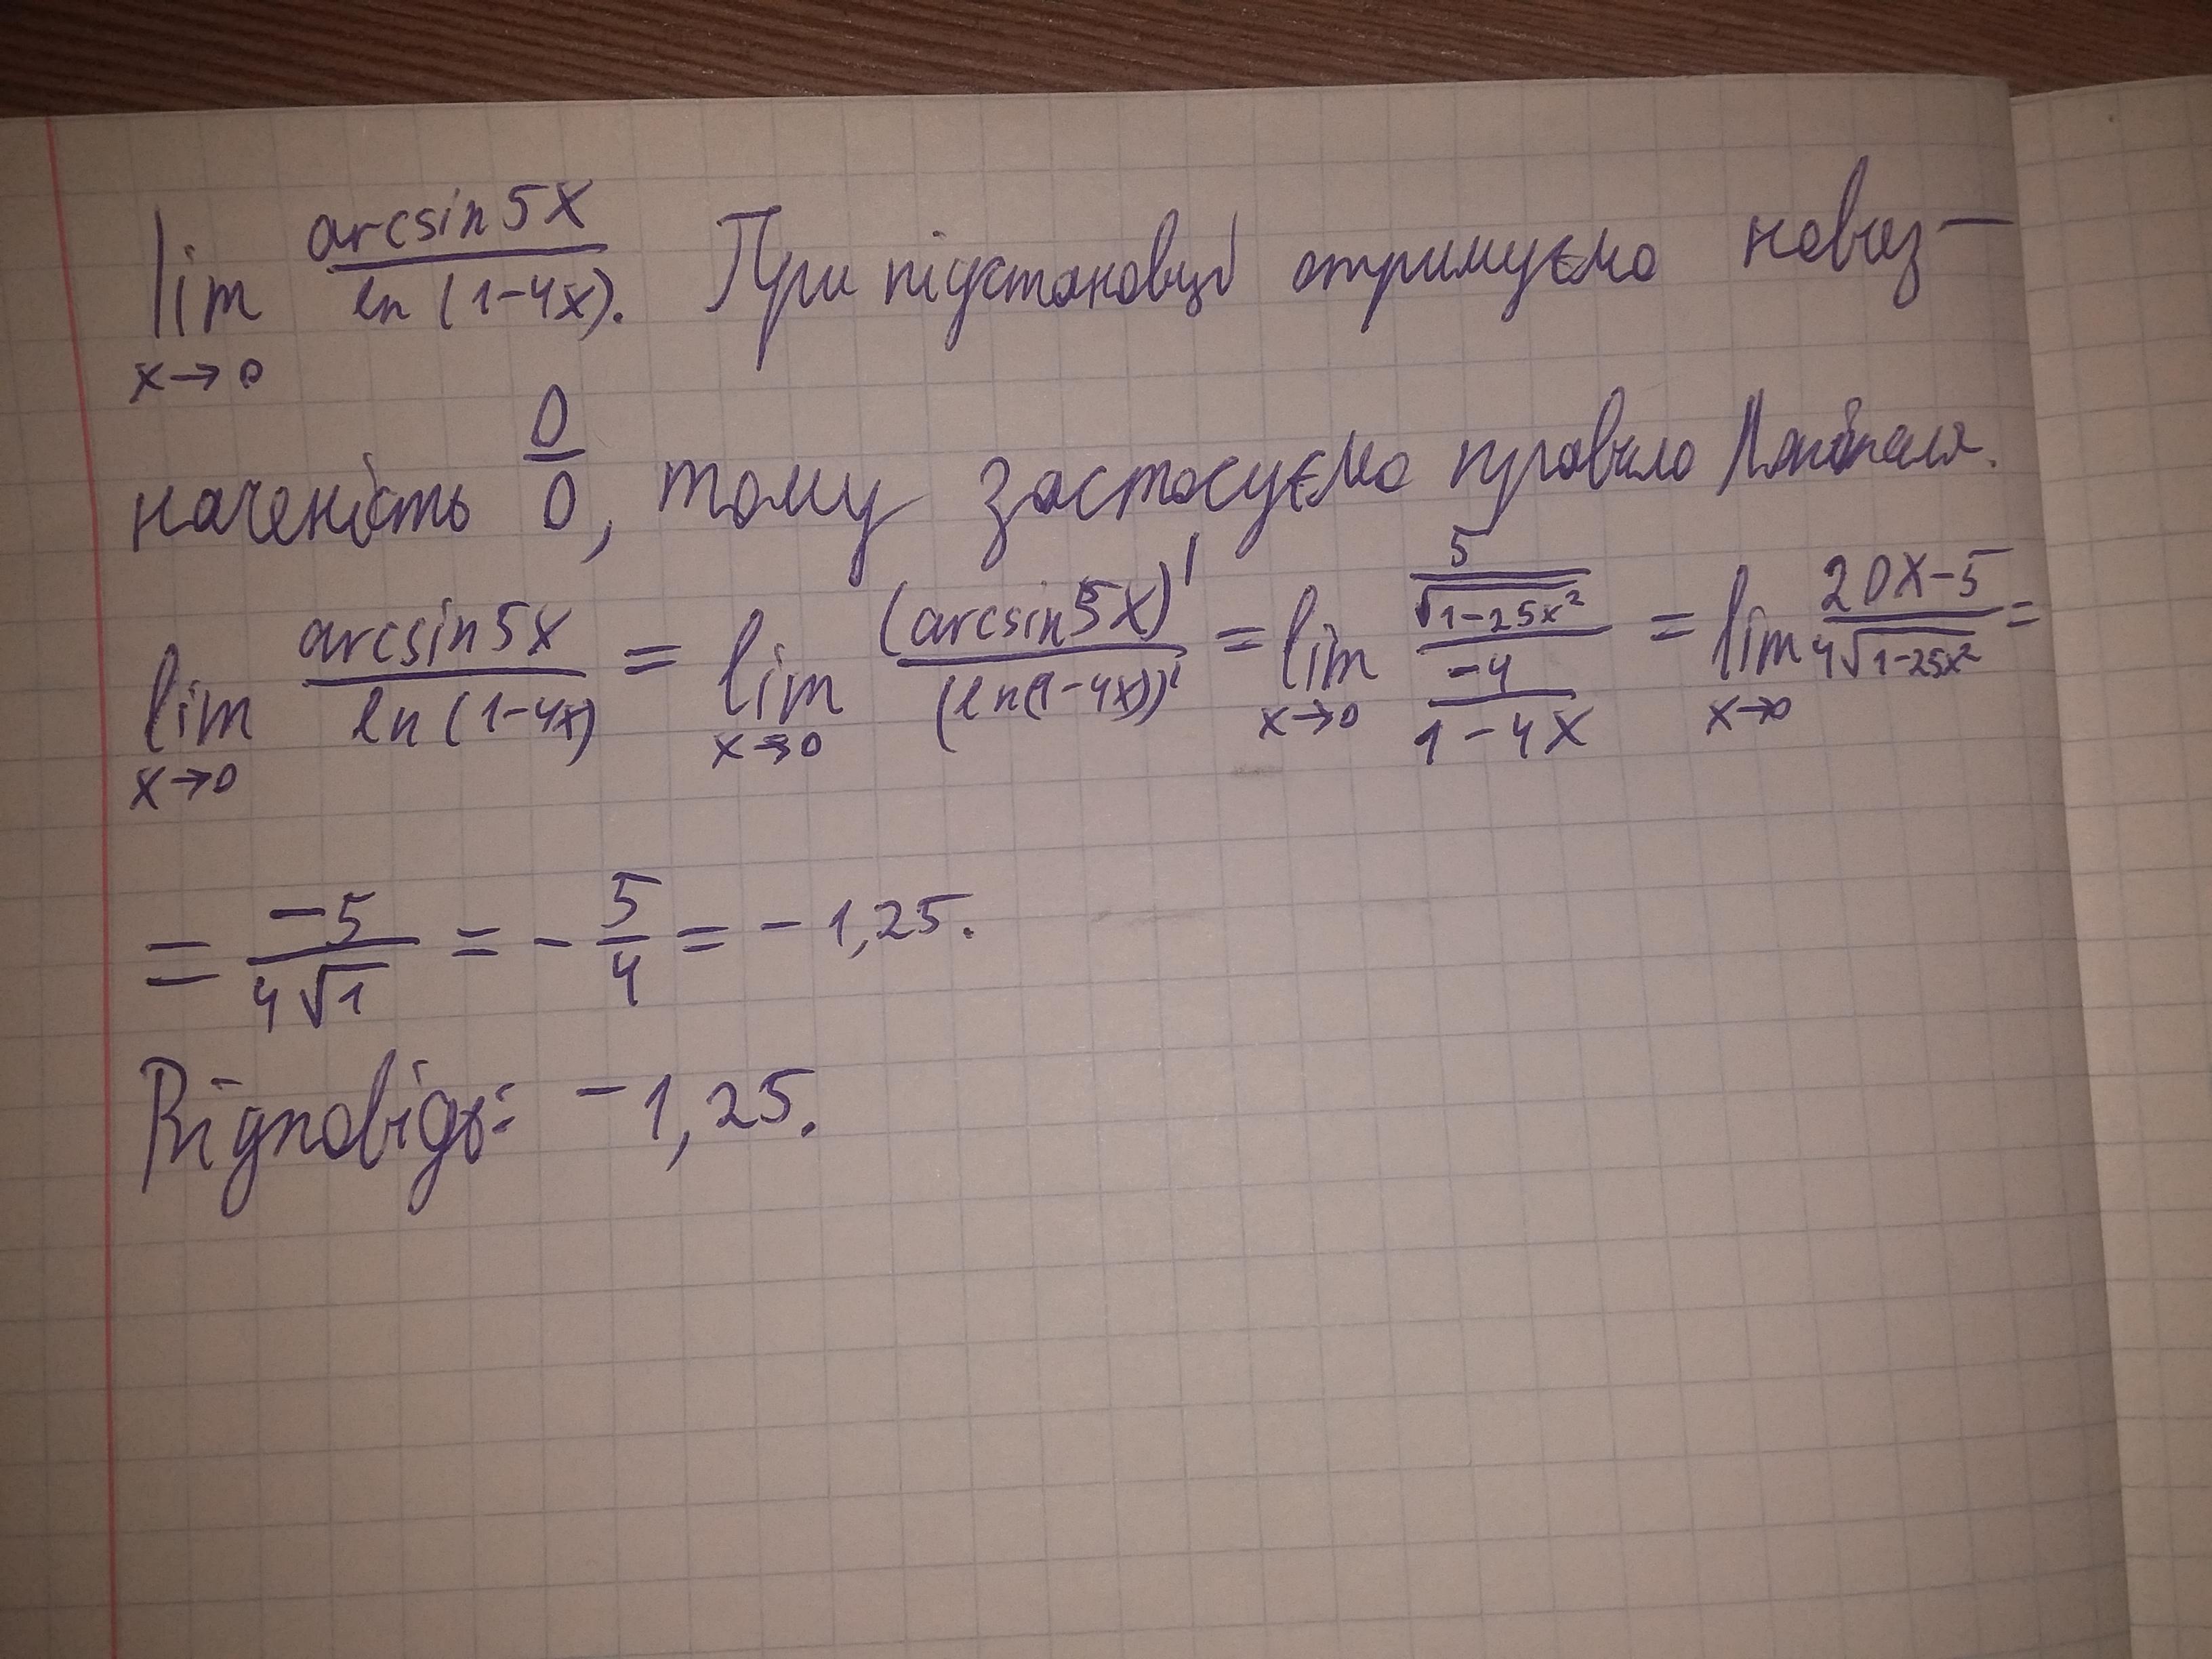 lim x→0 arcsin5x / ln(1-4x). При підстановці отримуємо невиз-
наченість 0/0, тому застосуємо правило Лопіталя.
lim x→0 arcsin5x / ln(1-4x) = lim x→0 (arcsin5x)' / (ln(1-4x))' = lim x→0 (5/√(1-25x²)) / (-4/(1-4x)) = lim x→0 (20x-5) / (4√(1-25x²)) =
= -5 / (4√1) = -5/4 = -1,25.
Відповідь: -1,25.